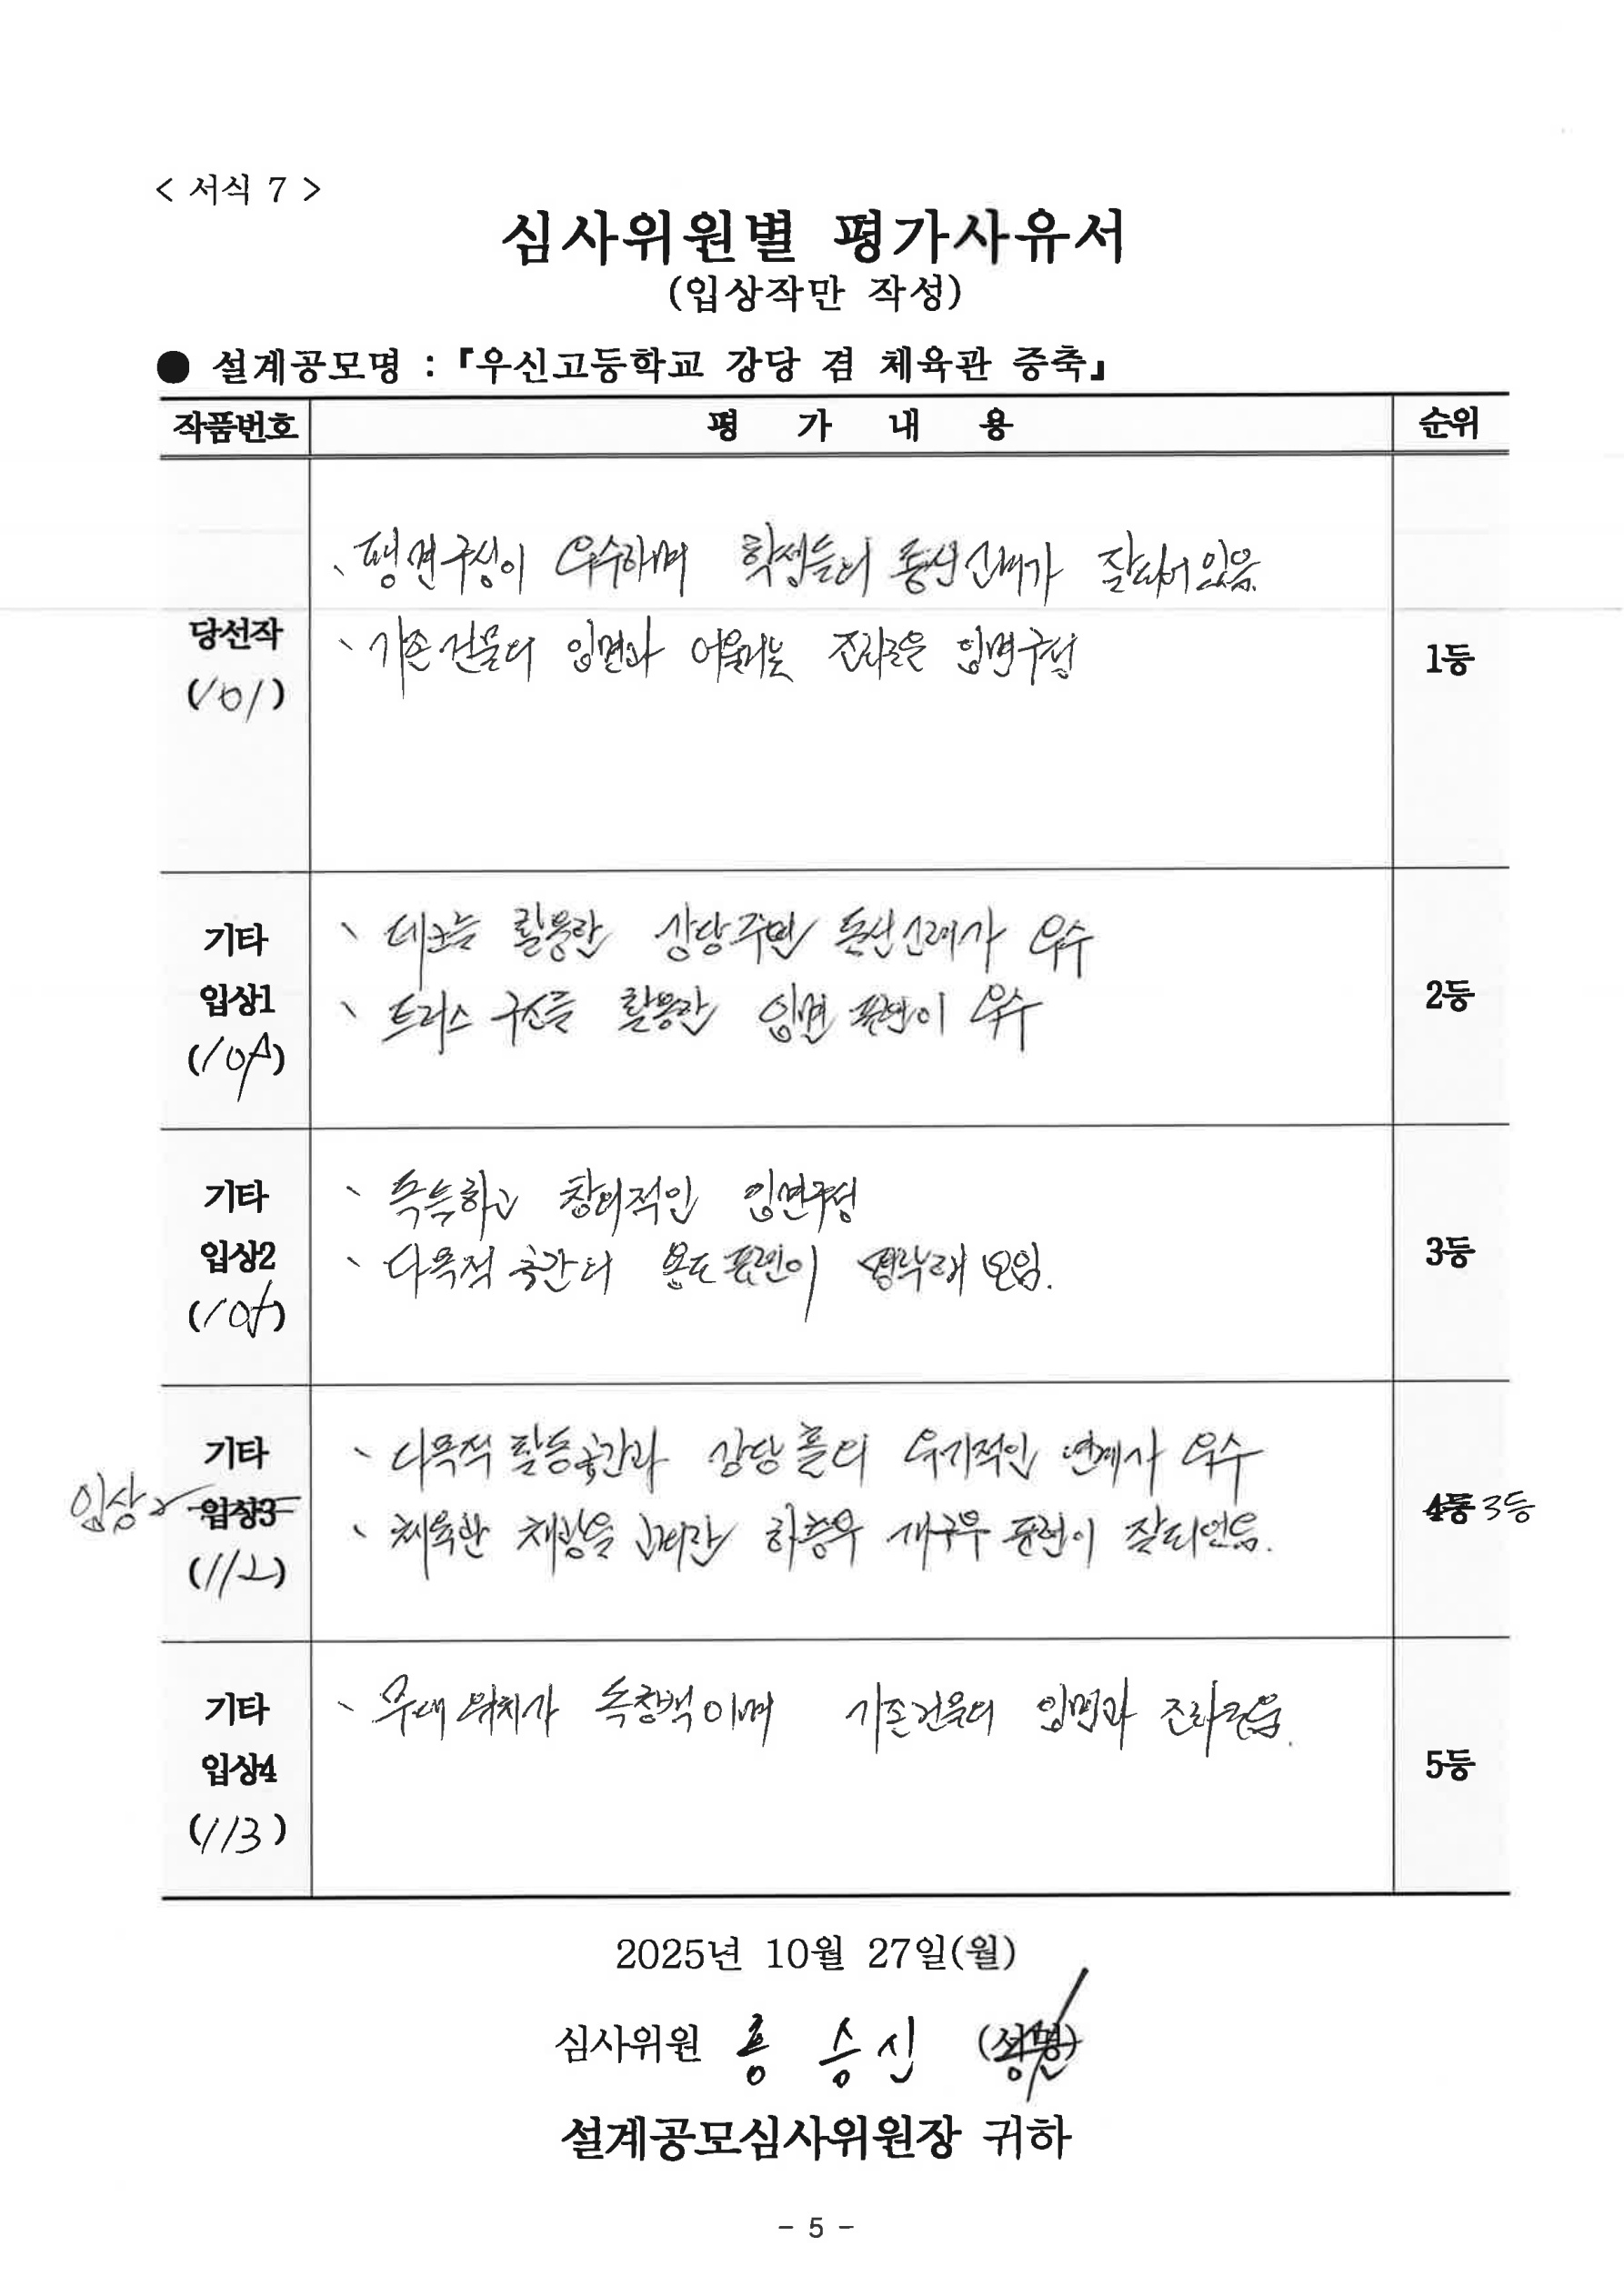 < 서식 7 >
심사위원별 평가사유서
(입상작만 작성)
● 설계공모명 : 『우신고등학교 강당 겸 체육관 증축』
작품번호 평 가 내 용 순위
당선작
(101)
、평면구성이 우수하며 학생들의 동선신래가 잘되어 있음.
、기존건물의 입면과 어울리는 조화로운 입면구성
1등
기타
입상1
、데크를 활용한 강당주변 동선신래가 우수
、트러스 구조를 활용한 입면 표현이 우수
2등
기타
입상2
、독특하고 창의적인 입면구성
、다목적 공간의 용도 표현이 보임.
3등
기타
입상2 입상3
(112)
、다목적 활동공간과 강당 홀의 유기적인 연계가 우수
、체육관 채광을 고려한 하층부 개구부 표현이 잘되었음.
4등 3등
기타
입상4
(113)
、무대위치가 독창적이며 기존건물의 입면과 조화로움.
5등
2025년 10월 27일(월)
심사위원 홍 승 신 (성명)
설계공모심사위원장 귀하
- 5 -